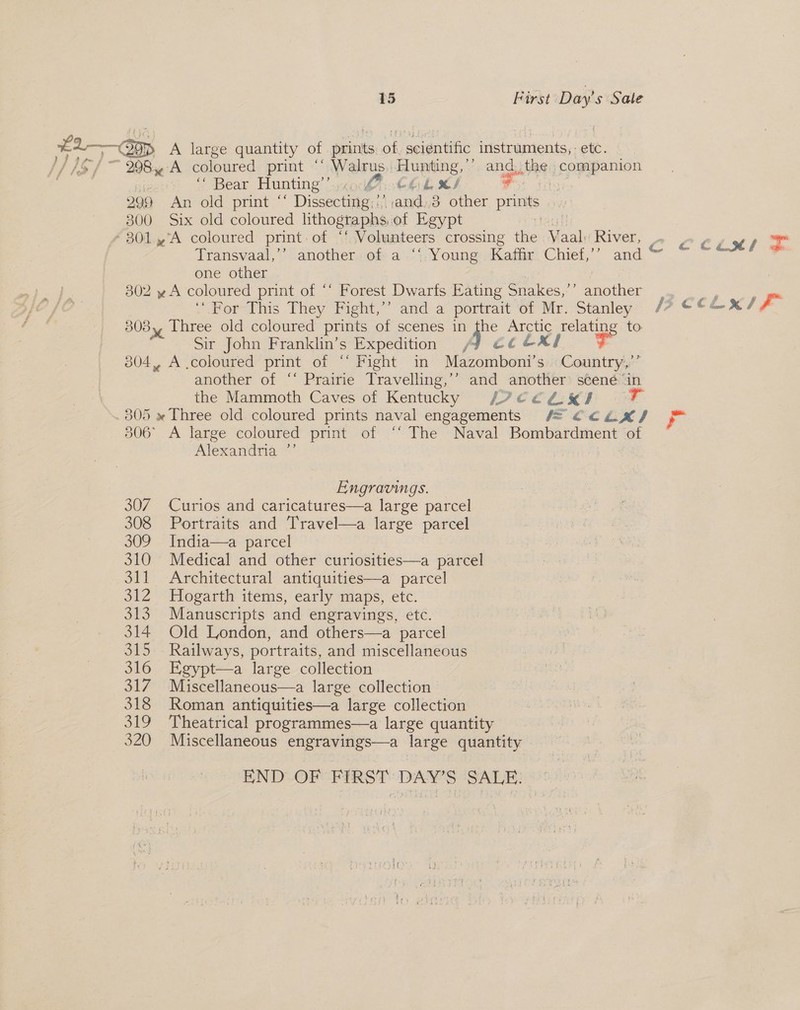 15 First Day's Sale
£2 297 A large quantity of prints of scientific instruments, etc.
298 A coloured print “ Walrus Hunting,” and the companion
“ Bear Hunting” CCLXI F
299 An old print “ Dissecting,” and 3 other prints
300 Six old coloured lithographs of Egypt
301 A coloured print of “ Volunteers crossing the Vaal River,
Transvaal,” another of a “ Young Kaffir Chief,” and CCLXI F
one other
302 A coloured print of “ Forest Dwarfs Eating Snakes,” another
“ For This They Fight,” and a portrait of Mr. Stanley CCLXI F
303 Three old coloured prints of scenes in the Arctic relating to
Sir John Franklin's Expedition CCLXI F
304 A coloured print of “ Fight in Mazomboni's Country,”
another of “ Prairie Travelling,” and another scene in
the Mammoth Caves of Kentucky CCLXI F
305 Three old coloured prints naval engagements CCLXI F
306 A large coloured print of “ The Naval Bombardment of
Alexandria ”
Engravings.
307 Curios and caricatures—a large parcel
308 Portraits and Travel—a large parcel
309 India—a parcel
310 Medical and other curiosities—a parcel
311 Architectural antiquities—a parcel
312 Hogarth items, early maps, etc.
313 Manuscripts and engravings, etc.
314 Old London, and others—a parcel
315 Railways, portraits, and miscellaneous
316 Egypt—a large collection
317 Miscellaneous—a large collection
318 Roman antiquities—a large collection
319 Theatrical programmes—a large quantity
320 Miscellaneous engravings—a large quantity
END OF FIRST DAY'S SALE.